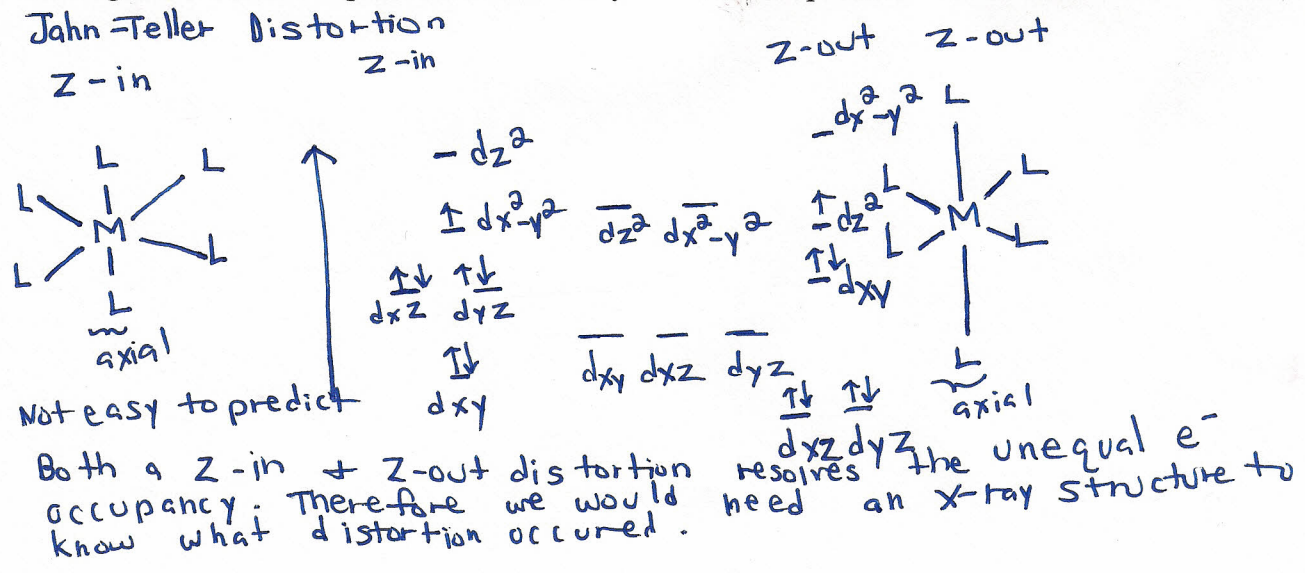 Jahn-Teller Distortion
z-in
z-in
z-out z-out
L
L
L
M
L
L
L
axial
Not easy to predict
- dz²
↑ dx²-y²
↑↓ ↑↓
dxz dyz
↑↓
dxy
dz² dx²-y²
dxy dxz dyz
dx²-y²
↑ dz²
↑↓ dxy
↑↓ ↑↓
dxz dyz
L
L
L
M
L
L
L
axial
Both a z-in + z-out distortion resolves the unequal e⁻
occupancy. Therefore we would need an x-ray structure to
know what distortion occured.